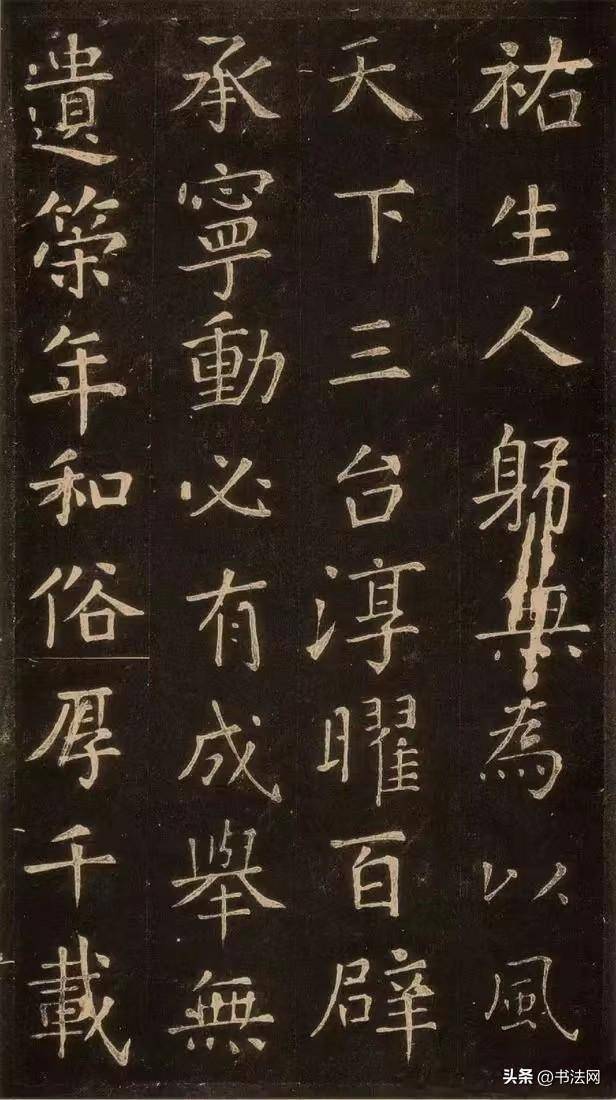 祐生人躬無為以風
天下三台淳曜百辟
承寧動必有成舉無
遺策年和俗厚千載
头条 @书法网